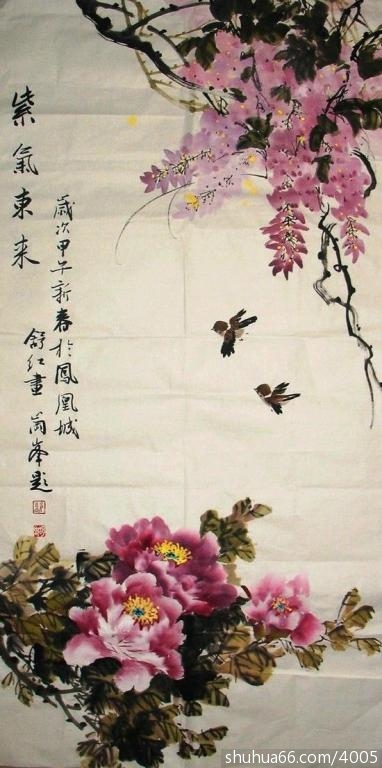 紫氣東来
歲次甲午新春於鳳凰城
舒红畫 尚峯题
shuhua66.com/4005